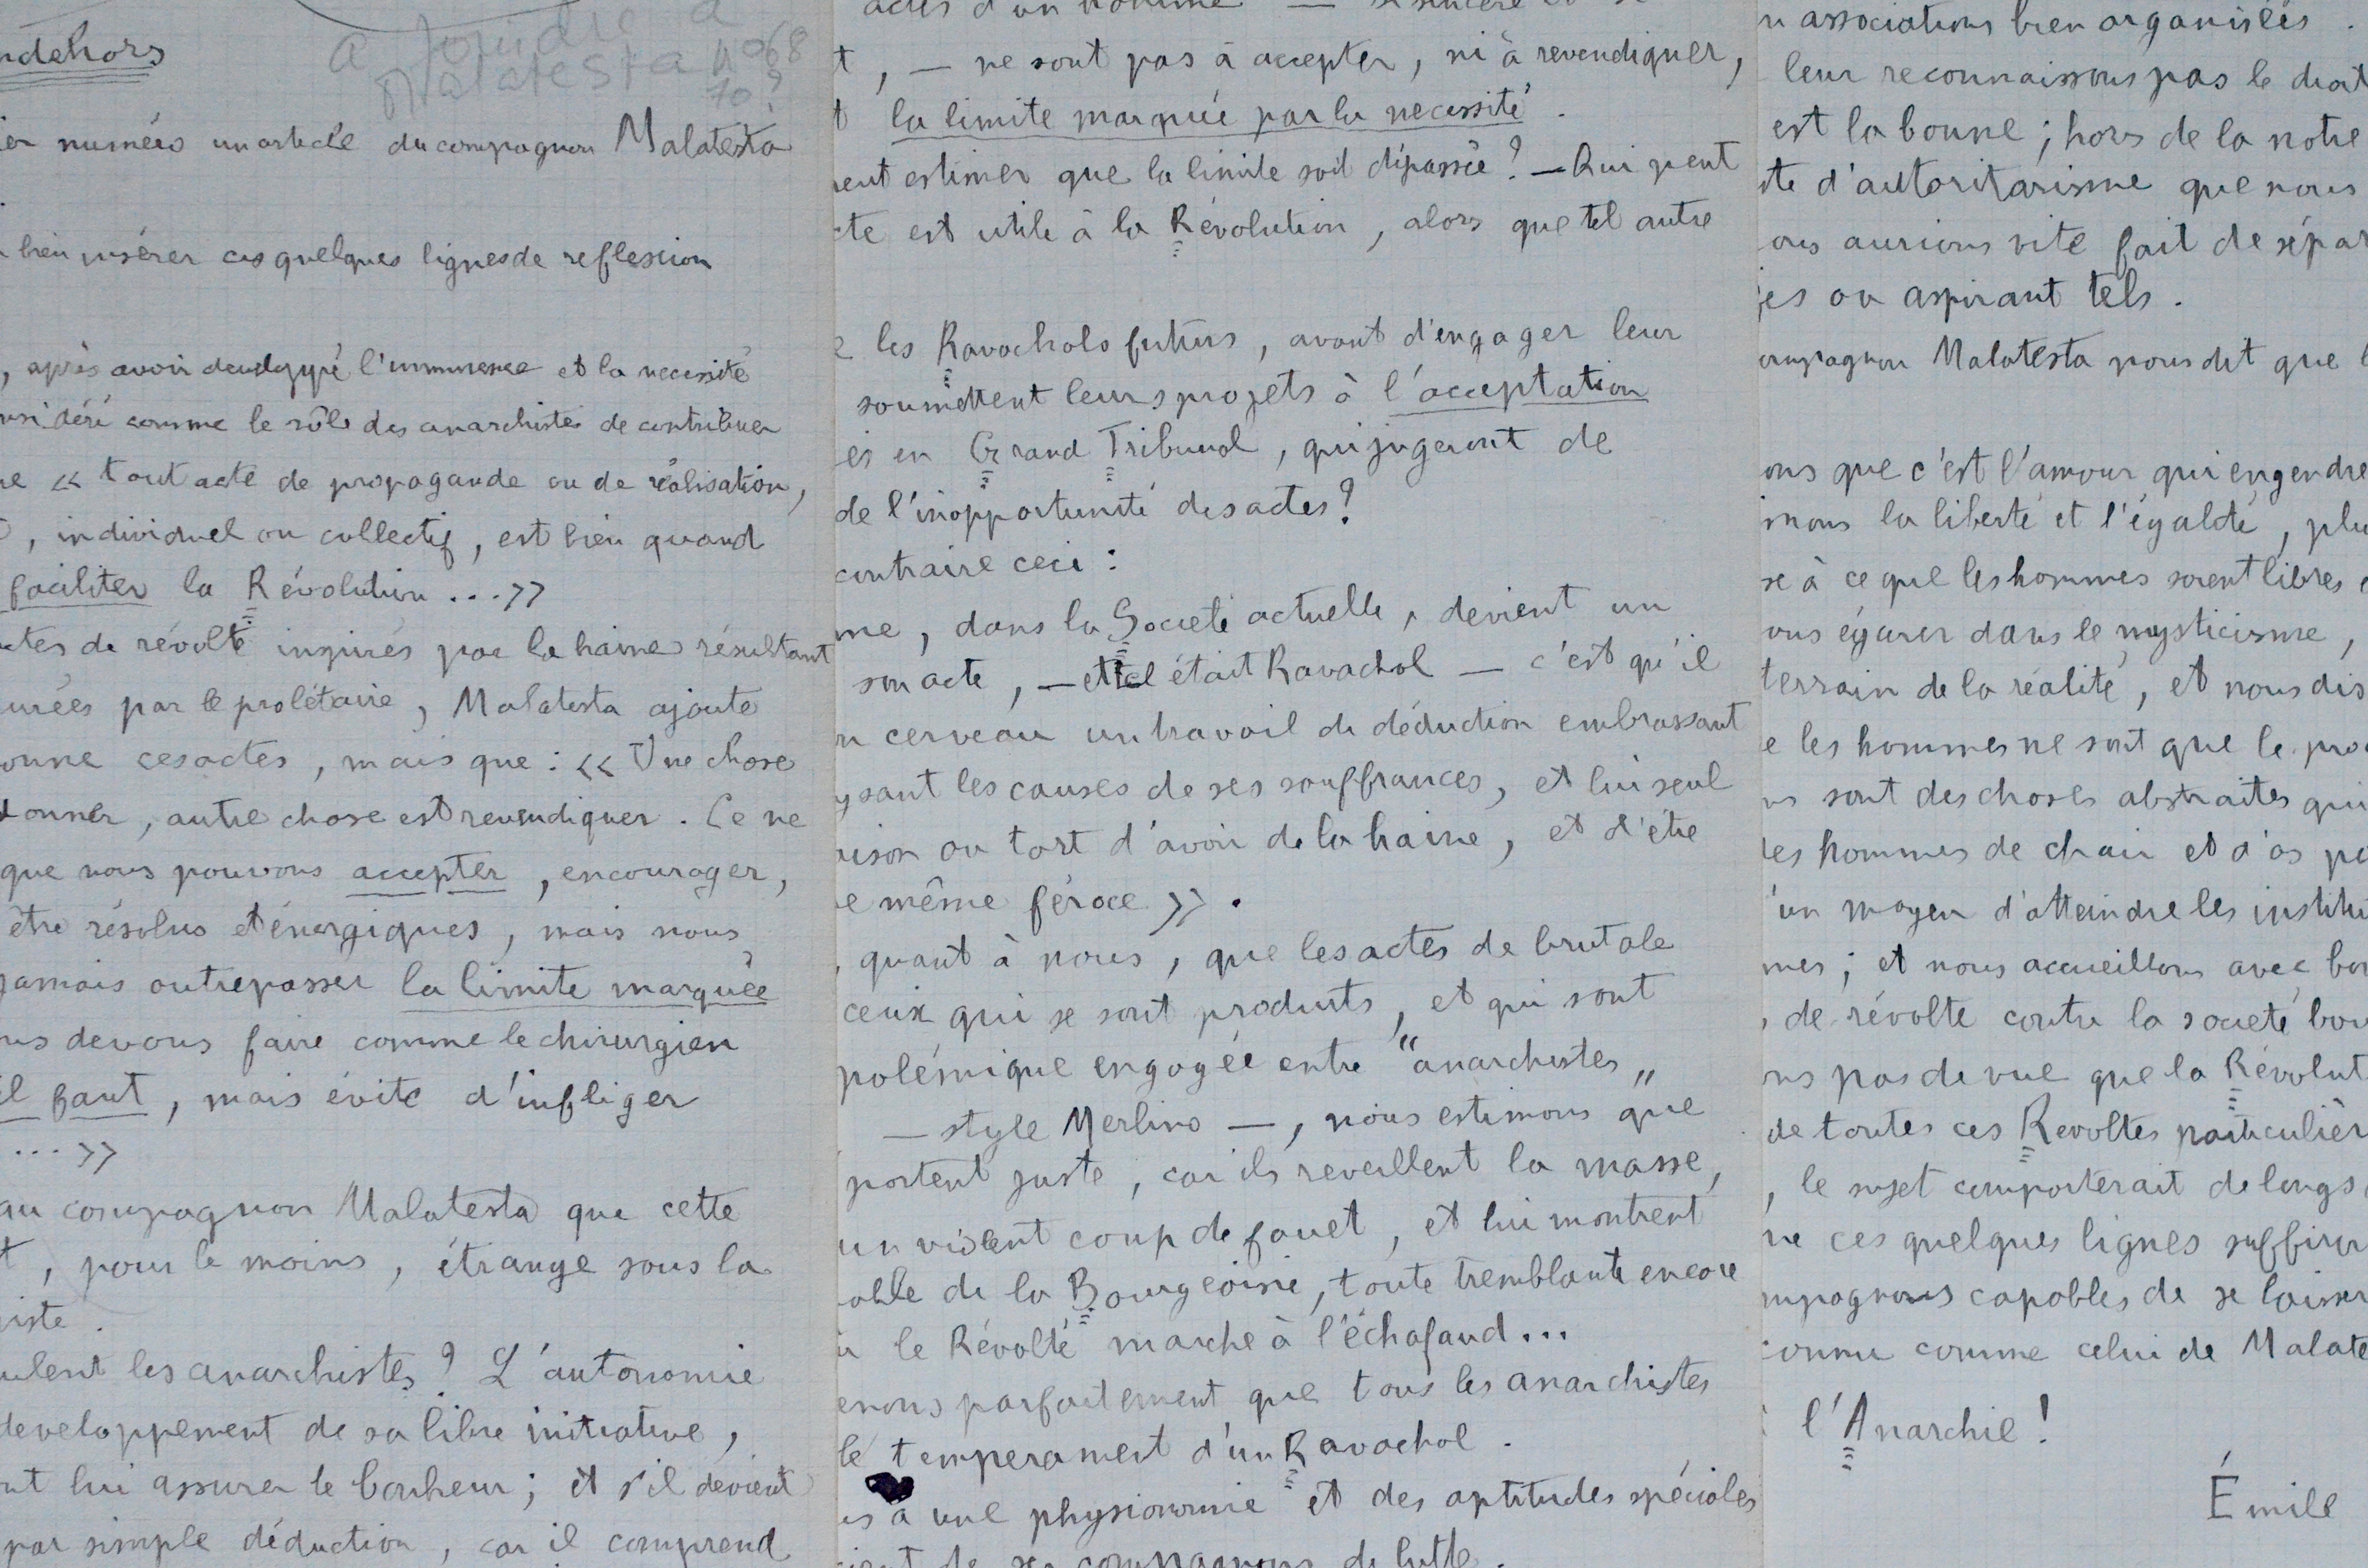 ndehors
a joindre a
Malatesta
numéro un article du compagnon Malatesta
bien insérer ces quelques lignes de reflexion
, après avoir developpé l'immense et la necessité
nsidéré comme le rôle des anarchistes de contribuer
« tout acte de propagande ou de réalisation,
, individuel ou collectif, est bien quand
faciliter la Révolution ... »
ctes de révolte inspirés par la haine résultant
urées par le prolétaire, Malatesta ajoute
onne ces actes, mais que : « Une chose
donner, autre chose est revendiquer. Ce ne
que nous pouvons accepter, encourager,
être résolus et énergiques, mais nous
jamais outrepasser la limite marquée
us devons faire comme le chirurgien
il faut, mais évite d'infliger
... »
au compagnon Malatesta que cette
t, pour le moins, étrange sous la
iste.
ulent les anarchistes ? L'autonomie
developpement de sa libre initiative,
nt lui assurer le bonheur ; et s'il devient
par simple déduction, car il comprend
t, — ne sont pas à accepter, ni à revendiquer,
t la limite marquée par la necessité.
eut estimer que la limite soit dépassée ? — Qui peut
cte est utile à la Révolution, alors que tel autre
e les Ravachols futurs, avant d'engager leur
soumettent leurs projets à l'acceptation
és en Grand Tribunal, qui jugeront de
de l'inopportunité des actes ?
contraire ceci :
me, dans la Société actuelle, devient un
son acte, — et tel était Ravachol — c'est qu'il
n cerveau un travail de déduction embrassant
ysant les causes de ses souffrances, et lui seul
aison ou tort d'avoir de la haine, et d'être
e même féroce ».
, quant à nous, que les actes de brutale
ceux qui se sont produits, et qui sont
polémique engagée entre "anarchistes„
— style Merlino —, nous estimons que
portent juste, car ils reveillent la masse,
un violent coup de fouet, et lui montrent
able de la Bourgeoisie, toute tremblante encore
ù le Révolté marche à l'échafaud...
enons parfaitement que tous les anarchistes
le temperament d'un Ravachol.
us a une physionomie et des aptitudes spéciales
de ses compagnons de lutte.
n associations bien organisées.
leur reconnaissons pas le droit
est la bonne ; hors de la notre
ste d'autoritarisme que nous
ous aurions vite fait de sépar
es ou aspirant tels.
ompagnon Malatesta nous dit que l
ons que c'est l'amour qui engendre
imons la liberté et l'égalité, plu
se à ce que les hommes soient libres e
ous égarer dans le mysticisme,
terrain de la réalité, et nous dis
e les hommes ne sont que le pro
ns sont des choses abstraites qui
les hommes de chair et d'os po
'un moyen d'atteindre les institu
mes ; et nous accueillons avec bon
, de révolte contre la société bou
ns pas de vue que la Révolut
de toutes ces Revoltes particulièr
, le sujet comporterait de longs
ue ces quelques lignes suffiron
mpagnons capables de se laisser
connu comme celui de Malate
l'Anarchie !
Émile